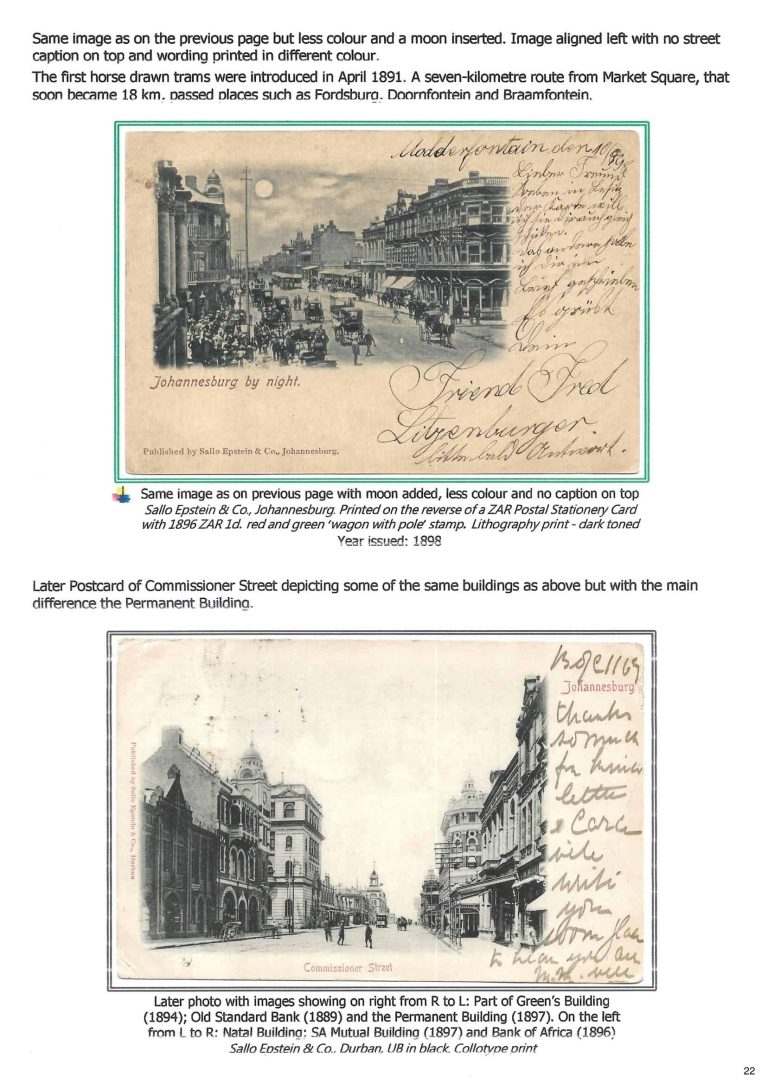 Same image as on the previous page but less colour and a moon inserted. Image aligned left with no street
caption on top and wording printed in different colour.
The first horse drawn trams were introduced in April 1891. A seven-kilometre route from Market Square, that
soon became 18 km, passed places such as Fordsburg, Doornfontein and Braamfontein.
Modderfontain den 10/
Lieber Freund
der Karte will
ich dir
Brief geschrieben
Es grüsst
Dein
Friend Fred
Litzenburger
bitte bald Antwort.
Johannesburg by night.
Published by Sallo Epstein & Co., Johannesburg.
Same image as on previous page with moon added, less colour and no caption on top
Sallo Epstein & Co., Johannesburg. Printed on the reverse of a ZAR Postal Stationery Card
with 1896 ZAR 1d. red and green 'wagon with pole' stamp. Lithography print - dark toned
Year issued: 1898
Later Postcard of Commissioner Street depicting some of the same buildings as above but with the main
difference the Permanent Building.
Johannesburg
thanks
so much
for
letter
& Card
will
write
you
soon
to hear you are
well
Published by Sallo Epstein & Co., Durban
Commissioner Street
Later photo with images showing on right from R to L: Part of Green's Building
(1894); Old Standard Bank (1889) and the Permanent Building (1897). On the left
from L to R: Natal Building; SA Mutual Building (1897) and Bank of Africa (1896)
Sallo Epstein & Co., Durban, UB in black. Collotype print
22